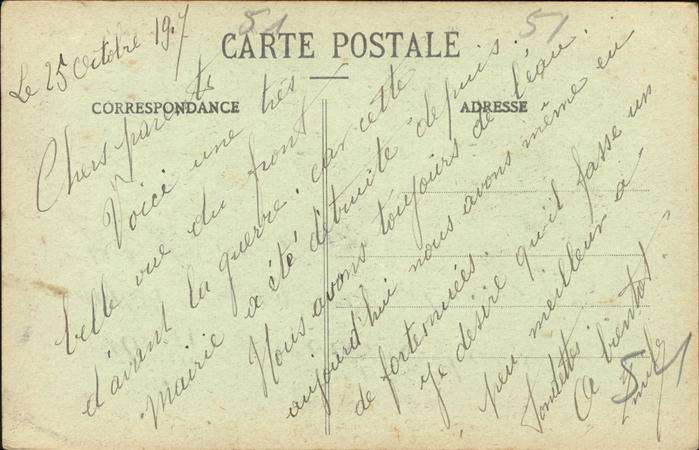 51
51
Le 25 Octobre 19.7
CARTE POSTALE
CORRESPONDANCE
ADRESSE
Chers parents
Voici une très
belle vue du front
d'avant la guerre, car cette
Mairie a été détruite depuis.
Nous avons toujours de l'eau.
aujourd'hui nous avons même eu
de fortes nuées.
Je désire qu'il fasse un
peu meilleur à
Fondettes.
A bientot.
Emile
51